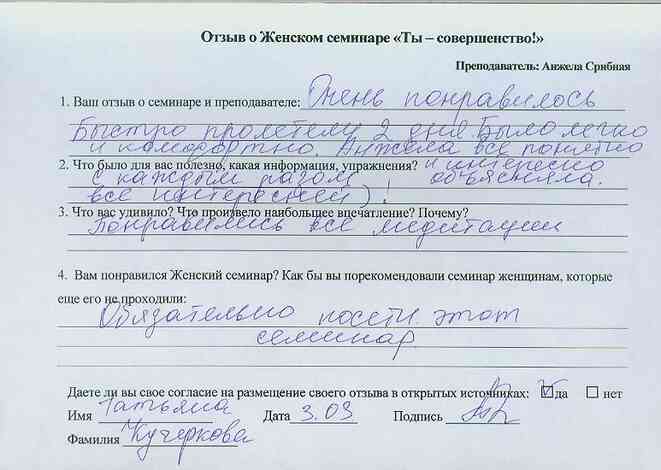 Отзыв о Женском семинаре «Ты – совершенство!»
Преподаватель: Анжела Срибная
1. Ваш отзыв о семинаре и преподавателе: Очень понравилось
Быстро пролетели 2 дня. Было легко
и комфортно. Анжела все понятно
2. Что было для вас полезно, какая информация, упражнения? и интересно
с каждым разом объясняла.
все интересней)!
3. Что вас удивило? Что произвело наибольшее впечатление? Почему?
Понравились все медитации
4. Вам понравился Женский семинар? Как бы вы порекомендовали семинар женщинам, которые
еще его не проходили:
Обязательно посети этот
семинар
Даете ли вы свое согласие на размещение своего отзыва в открытых источниках: да нет
Имя Татьяна Дата 3.03 Подпись
Фамилия Кучеркова